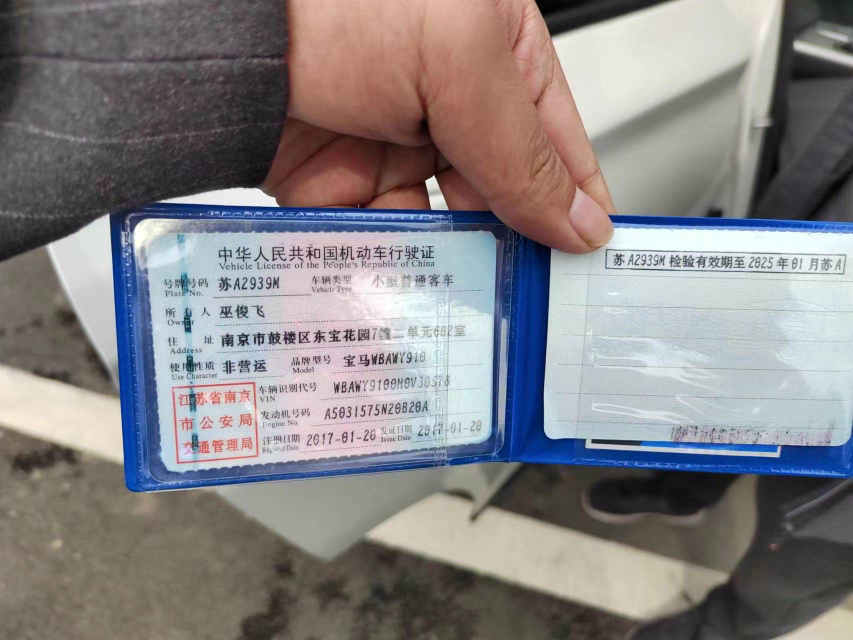 中华人民共和国机动车行驶证
Vehicle License of the People's Republic of China
号牌号码 苏A2939M 车辆类型 小型普通客车
Plate No. Vehicle Type
所有人 巫俊飞
Owner
住址 南京市鼓楼区东宝花园7幢二单元602室
Address
使用性质 非营运 品牌型号 宝马WBAWY910
Use Character Model
江苏省南京
市公安局
交通管理局
车辆识别代号 WBAWY9100H0V30578
VIN
发动机号码 A5031575N20B20A
Engine No.
注册日期 2017-01-20 发证日期 2017-01-20
Register Date Issue Date
苏A2939M 检验有效期至 2025年01月苏A